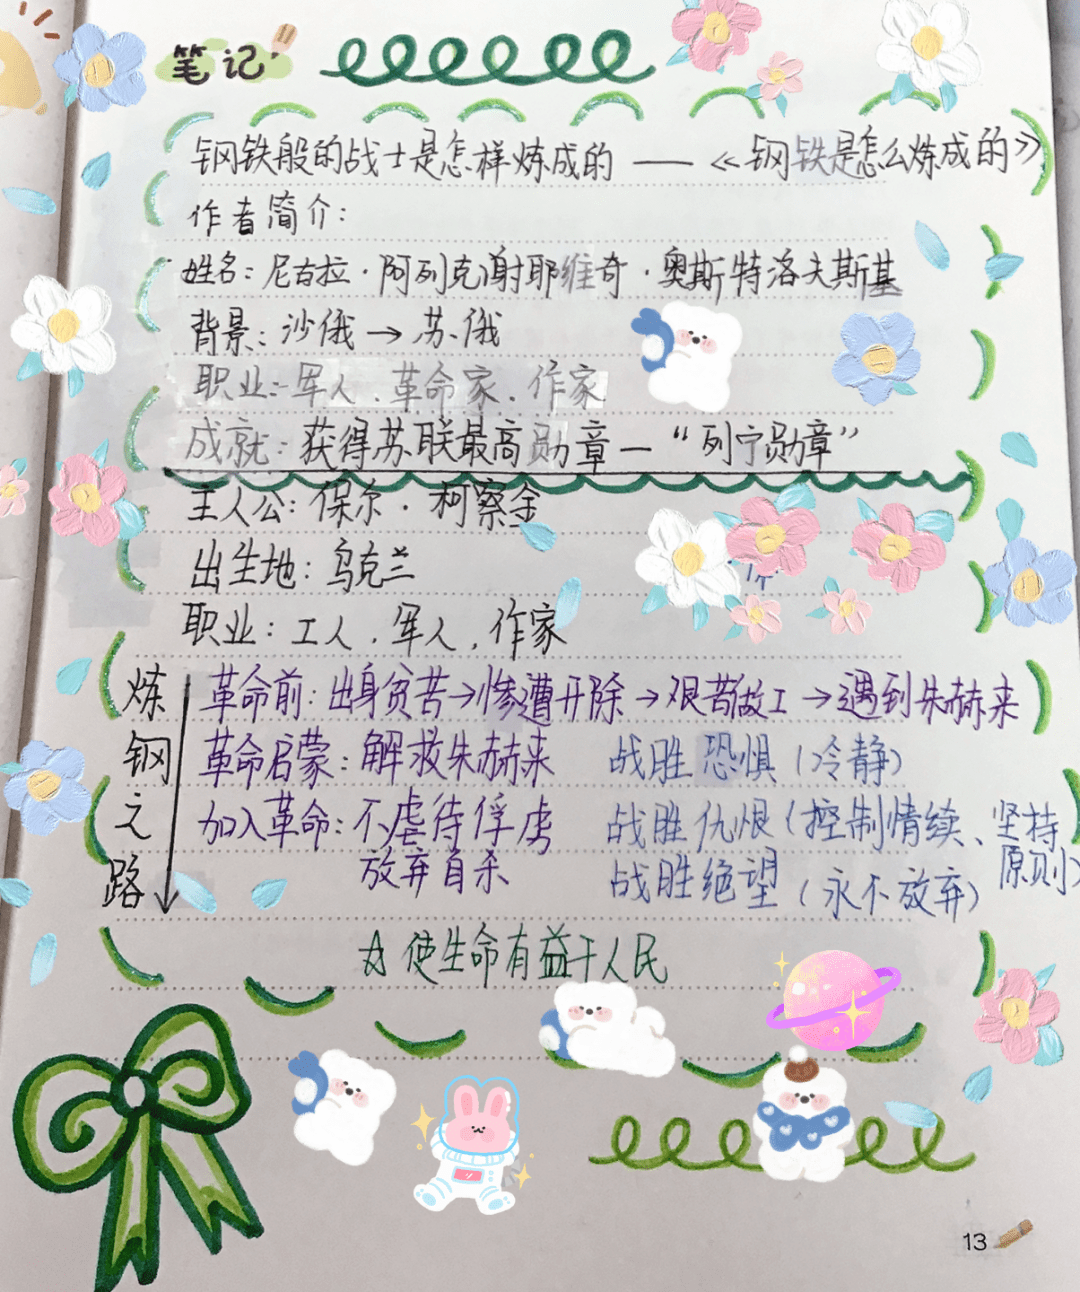 笔记
钢铁般的战士是怎样炼成的 —— 《钢铁是怎么炼成的》
作者简介:
姓名: 尼古拉·阿列克谢耶维奇·奥斯特洛夫斯基
背景: 沙俄 → 苏俄
职业: 军人、革命家、作家
成就: 获得苏联最高勋章—“列宁勋章”
主人公: 保尔·柯察金
出生地: 乌克兰
职业: 工人, 军人, 作家
炼钢之路
革命前: 出身贫苦→惨遭开除→艰苦做工→遇到朱赫来
革命启蒙: 解救朱赫来 战胜恐惧(冷静)
加入革命: 不虐待俘虏 战胜仇恨(控制情续、坚持原则)
放弃自杀 战胜绝望(永不放弃)
☆ 使生命有益于人民
13